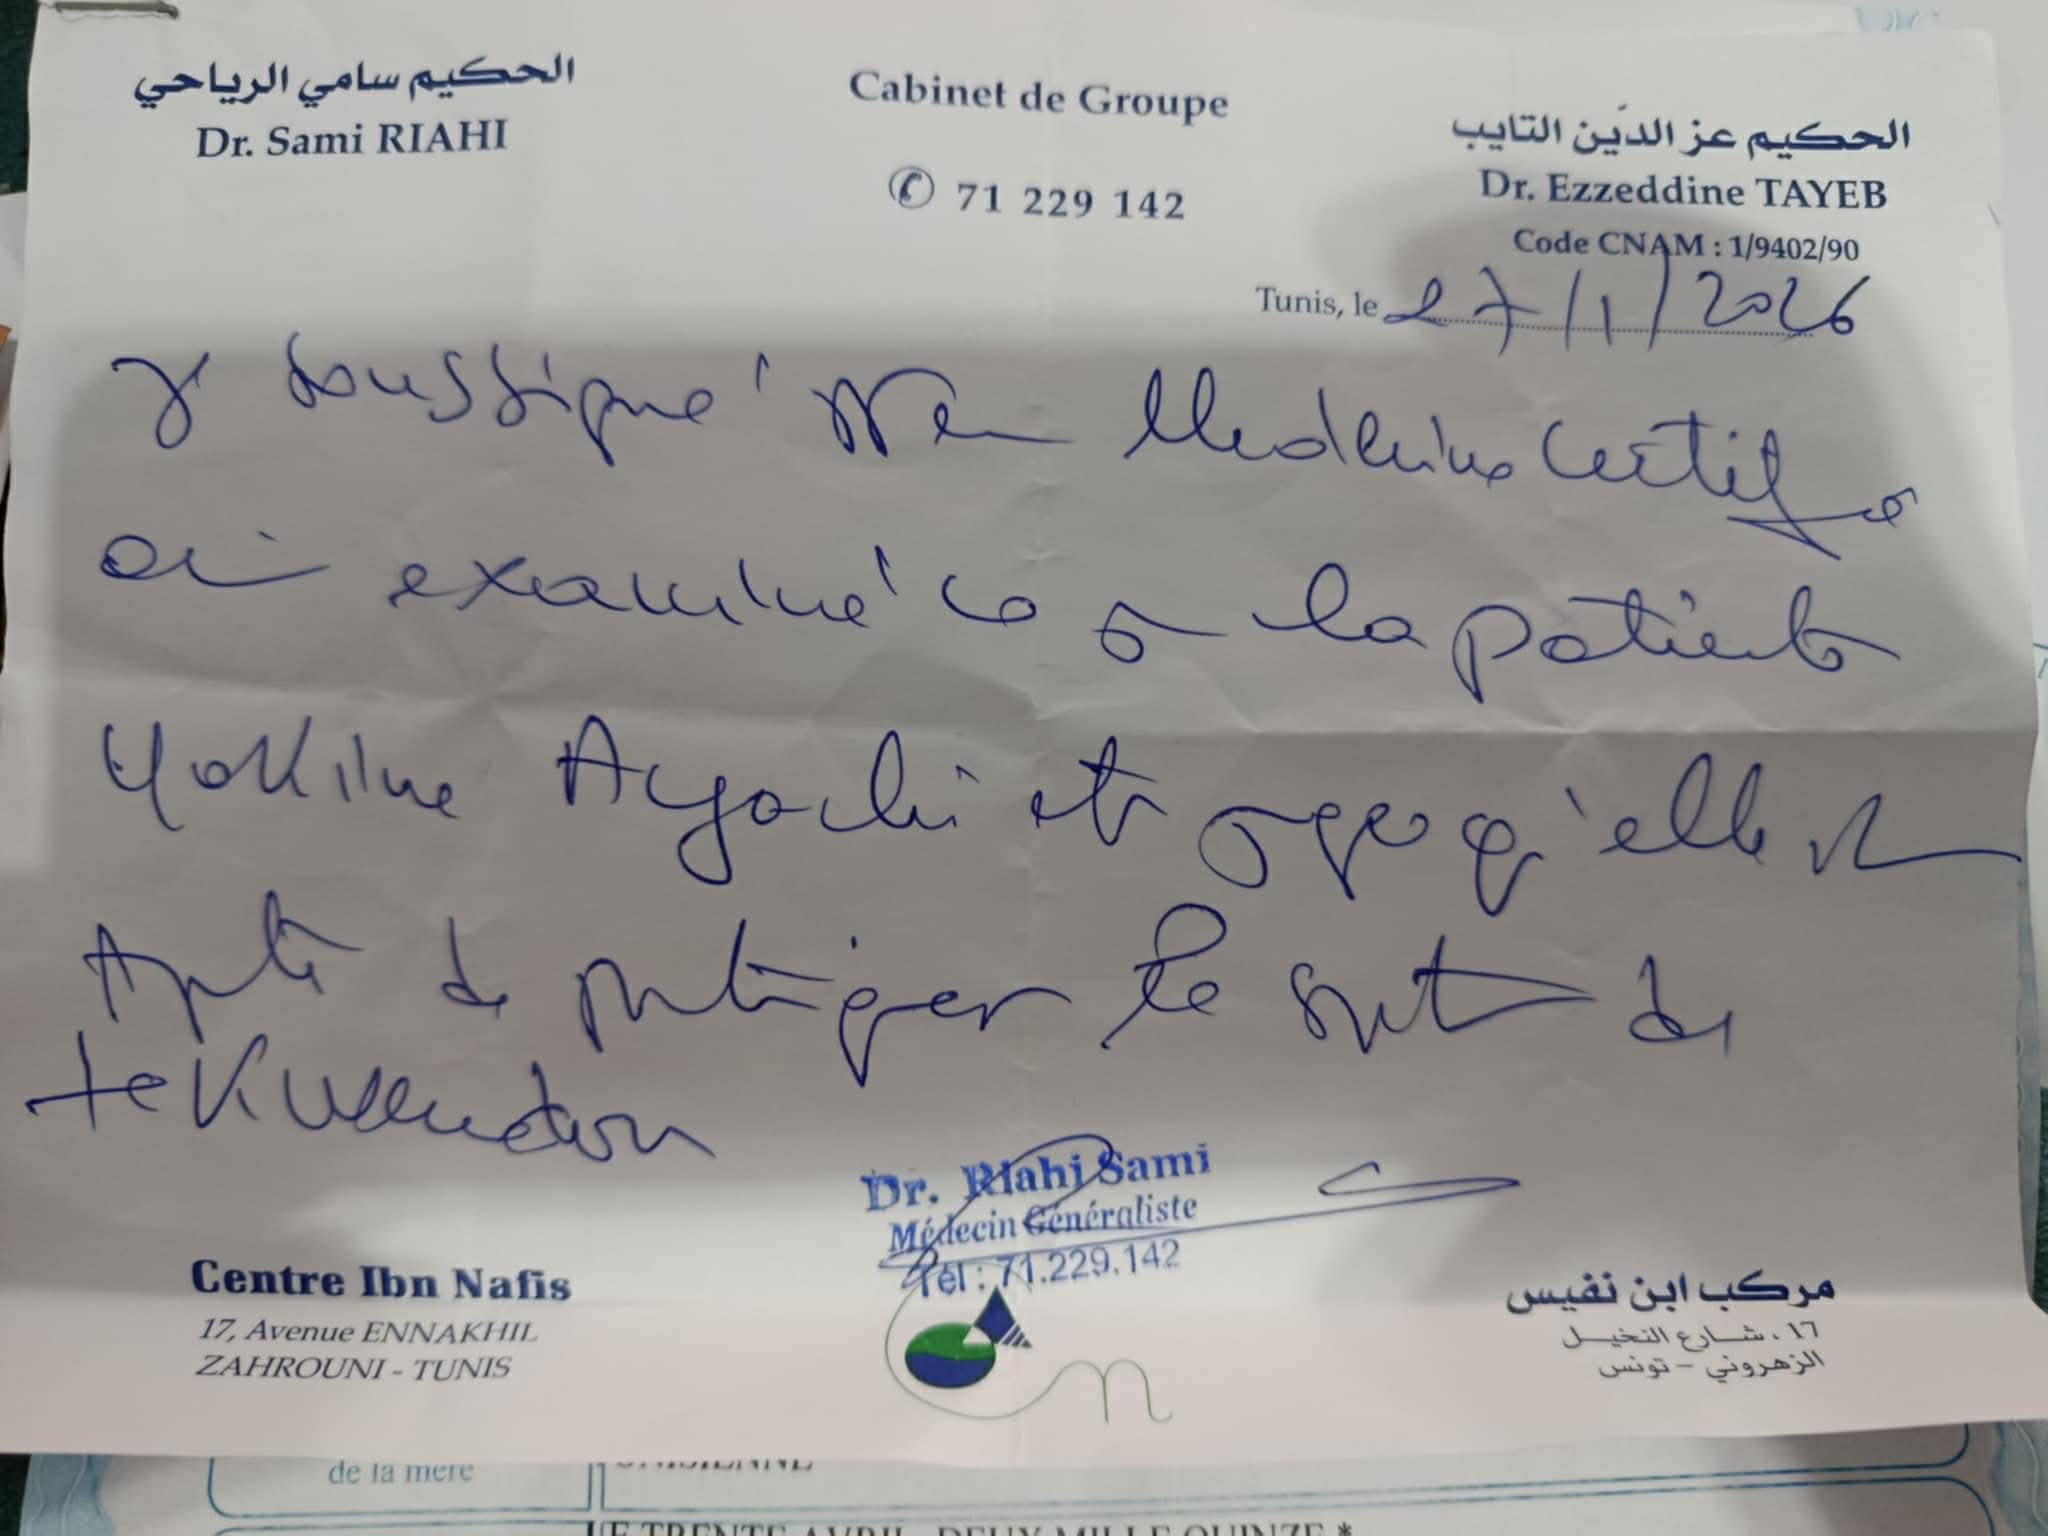 الحكيم سامي الرياحي
Dr. Sami RIAHI
Cabinet de Groupe
✆ 71 229 142
الحكيم عز الدّين التايب
Dr. Ezzeddine TAYEB
Code CNAM : 1/9402/90
Tunis, le 27/1/2026
soussigné Médecine certifie
ai examiné ce la patiente
Yakine Ayachi et qu'elle
Apte de pratiquer le sport de
tekwendon
Dr. Riahi Sami
Médecin Généraliste
Tél : 71.229.142
Centre Ibn Nafis
17, Avenue ENNAKHIL
ZAHROUNI - TUNIS
مركب ابن نفيس
١٦ ، شارع النخيل
الزهروني - تونس
de la mère
LE TRENTE AVRIL DEUX MILLE QUINZE *